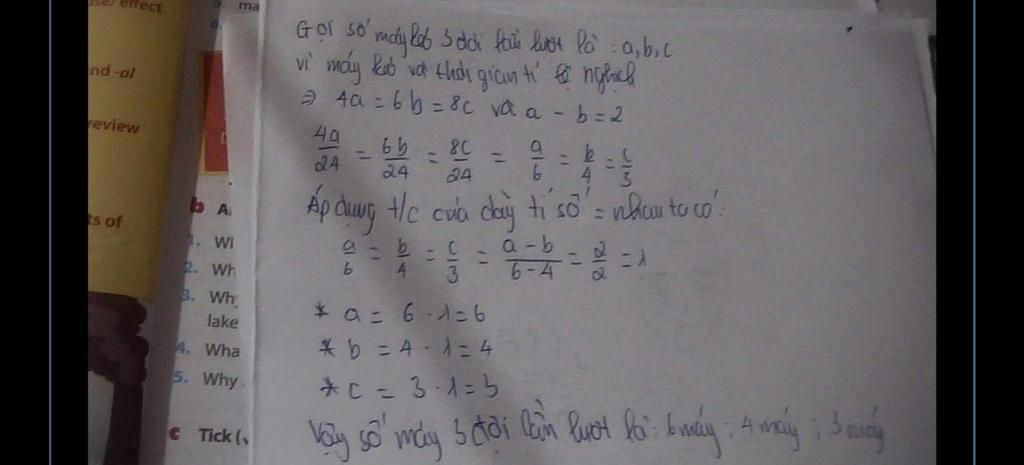 use/ effect
nd -al
review
ts of
5. ma
6.
b A
1. Wl
2. Wh
3. Why
lake
4. Wha
5. Why
c Tick (
Gọi số máy 3 đội lần lượt là : a, b, c
vì máy và thời gian tỉ lệ nghịch
⇒ 4a = 6b = 8c và a - b = 2
4a/24 = 6b/24 = 8c/24 = a/6 = b/4 = c/3
Áp dụng t/c của dãy tỉ số = nhau ta có:
a/6 = b/4 = c/3 = a - b/6 - 4 = 2/2 = 1
* a = 6 . 1 = 6
* b = 4 . 1 = 4
* c = 3 . 1 = 3
Vậy số máy 3 đội lần lượt là : 6 máy ; 4 máy ; 3 máy